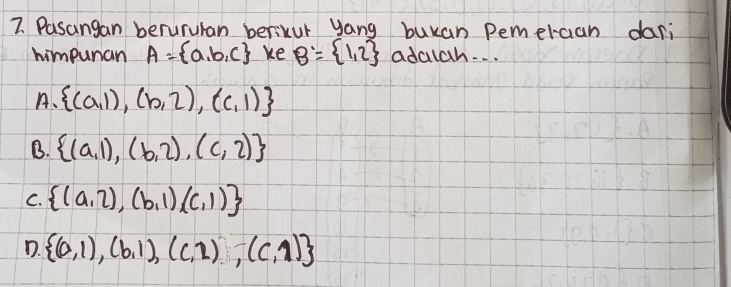 7. Pasangan berurutan berikut yang bukan Pemetaan dari
himpunan A = {a,b,c} ke B = {1,2} adalah...
A. {(a,1), (b,2), (c,1)}
B. {(a,1), (b,2), (c,2)}
C. {(a,2), (b,1) (c,1)}
D. {(a,1), (b,1), (c,2), (c,1)}